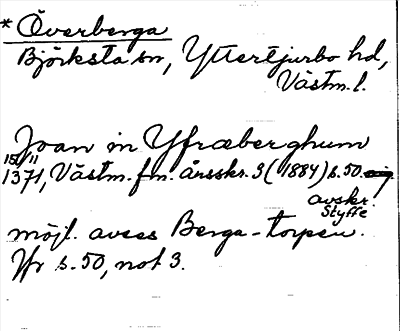 * Överberga
Björksta sn, Yttertjurbo hd,
Västm. l.
Joan in Yfræberghum
15/11
1371, Västm. fm. årsskr. 3 (1884) s. 50.
avskr.
Styffe
möjl. avses Berga-torpen.
Jfr s. 50, not 3.